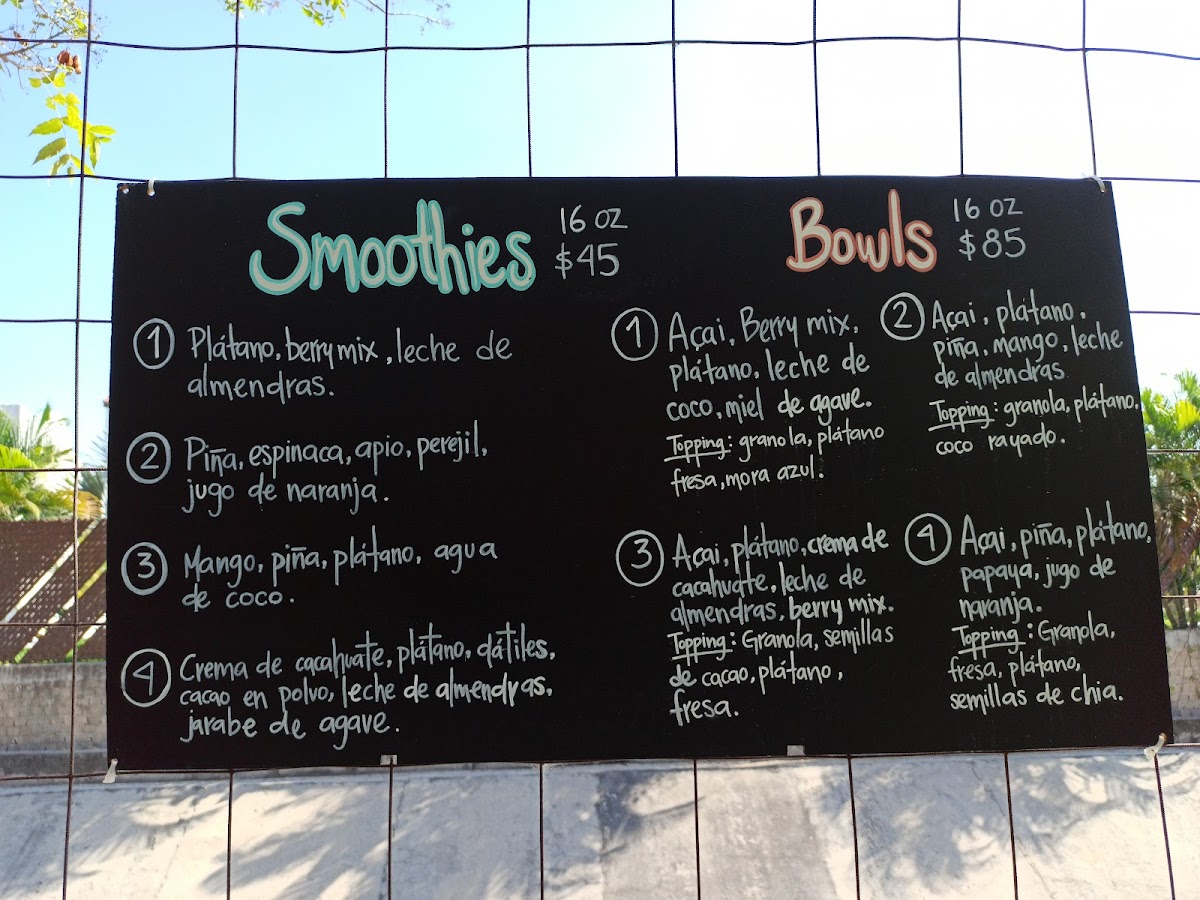 Smoothies
16 oz
$45
1 Plátano, berry mix, leche de
almendras.
2 Piña, espinaca, apio, perejil,
jugo de naranja.
3 Mango, piña, plátano, agua
de coco.
4 Crema de cacahuate, plátano, dátiles,
cacao en polvo, leche de almendras,
jarabe de agave.
Bowls
16 oz
$85
1 Açai, Berry mix,
plátano, leche de
coco, miel de agave.
Topping: granola, plátano
fresa, mora azul.
2 Açai, plátano,
piña, mango, leche
de almendras
Topping: granola, plátano,
coco rayado.
3 Açai, plátano, crema de
cacahuate, leche de
almendras, berry mix.
Topping: Granola, semillas
de cacao, plátano,
fresa.
4 Açai, piña, plátano,
papaya, jugo de
naranja.
Topping: Granola,
fresa, plátano,
semillas de chia.